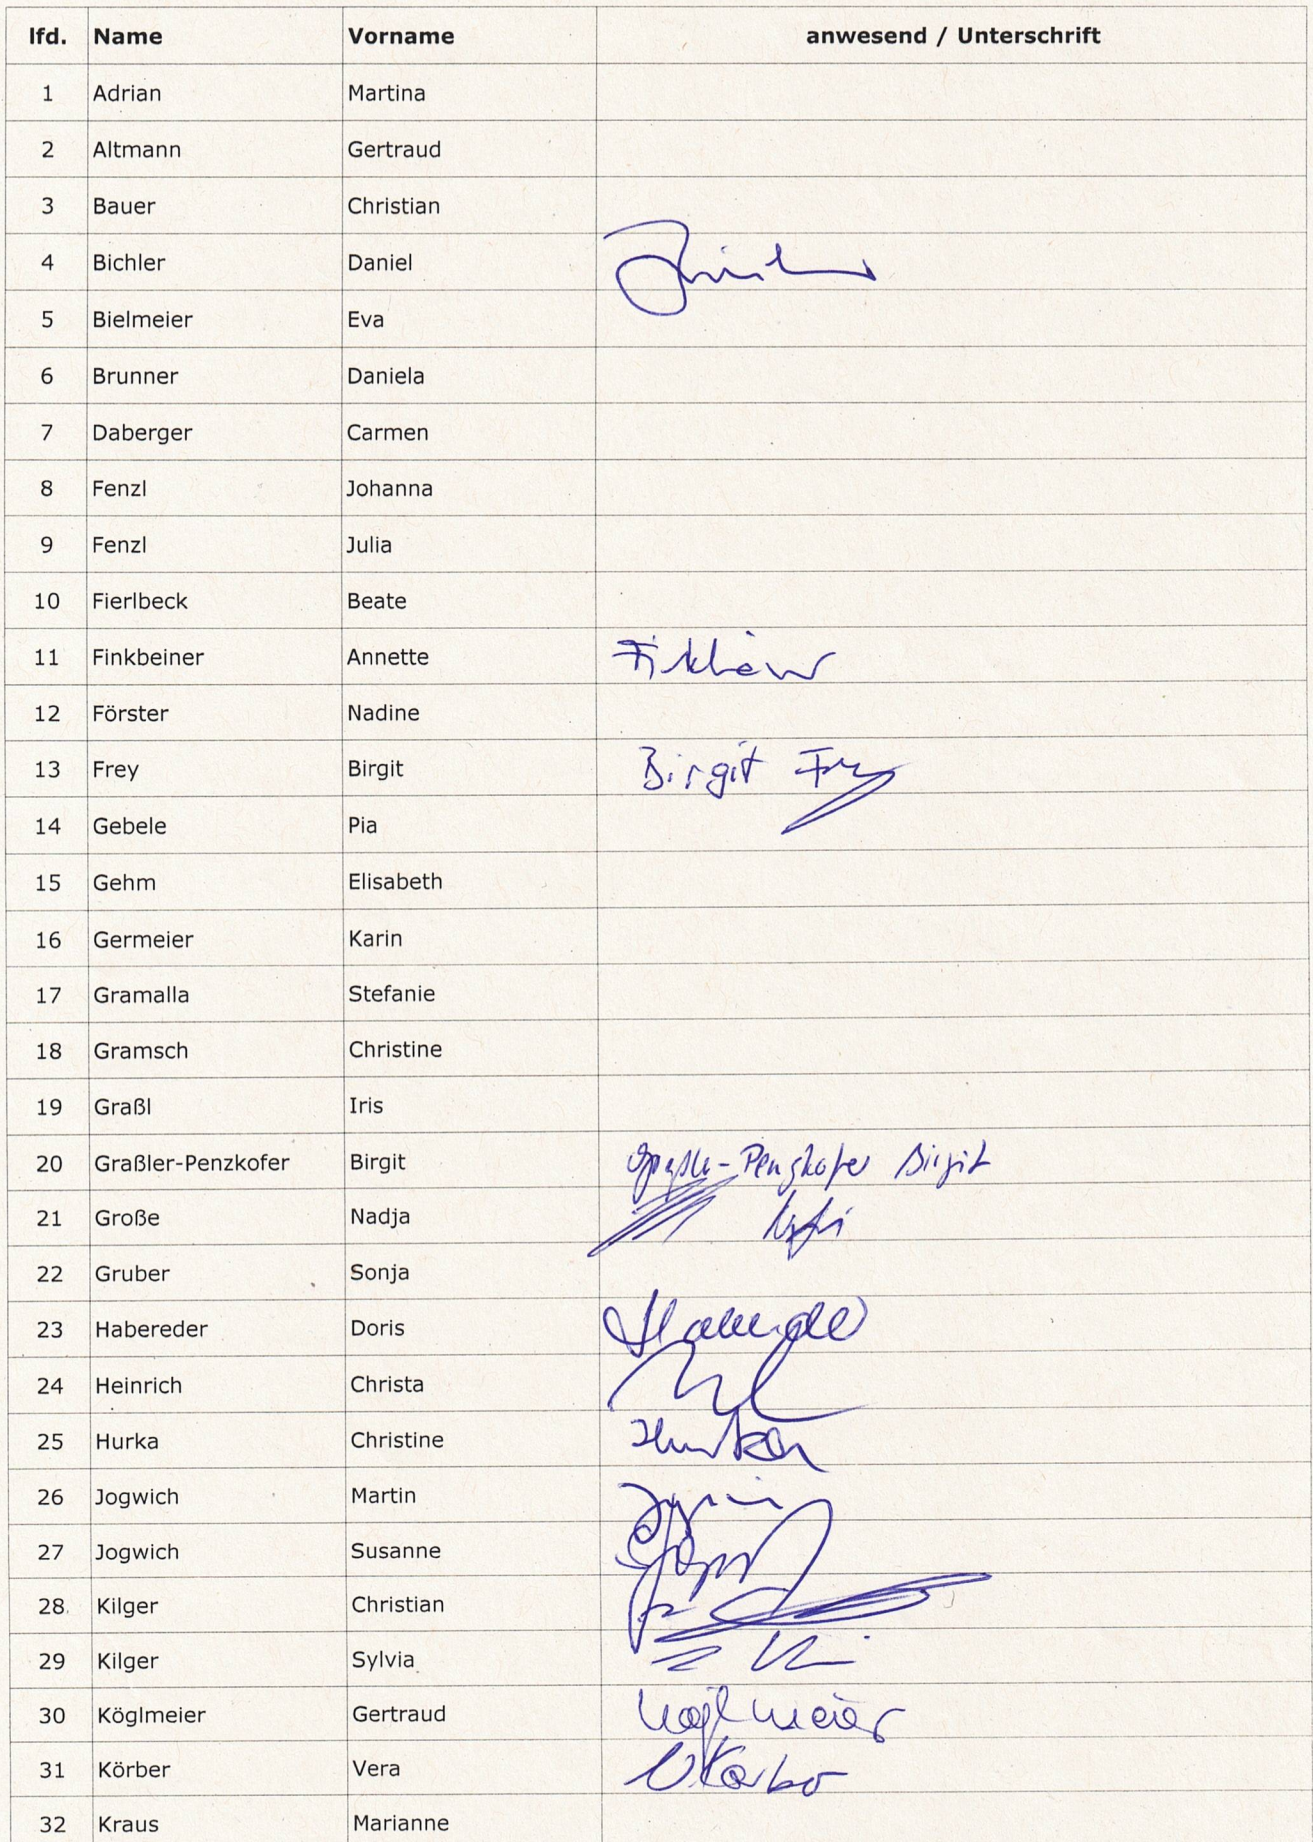 lfd. Name Vorname anwesend / Unterschrift
1 Adrian Martina
2 Altmann Gertraud
3 Bauer Christian
4 Bichler Daniel
5 Bielmeier Eva
6 Brunner Daniela
7 Daberger Carmen
8 Fenzl Johanna
9 Fenzl Julia
10 Fierlbeck Beate
11 Finkbeiner Annette
12 Förster Nadine
13 Frey Birgit Birgit Frey
14 Gebele Pia
15 Gehm Elisabeth
16 Germeier Karin
17 Gramalla Stefanie
18 Gramsch Christine
19 Graßl Iris
20 Graßler-Penzkofer Birgit Graßler-Penzkofer Birgit
21 Große Nadja
22 Gruber Sonja
23 Habereder Doris
24 Heinrich Christa
25 Hurka Christine Hurka
26 Jogwich Martin
27 Jogwich Susanne
28 Kilger Christian
29 Kilger Sylvia
30 Köglmeier Gertraud Köglmeier
31 Körber Vera
32 Kraus Marianne